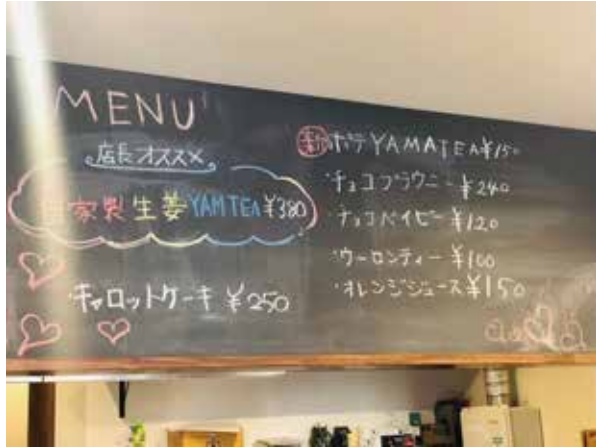 MENU
店長オススメ
自家製生姜YAMTEA¥380
・キャロットケーキ ¥250
新ポテYAMATEA¥150
・チョコブラウニー ¥240
・チョコベイビー ¥120
・ウーロンティー ¥100
・オレンジジュース¥150